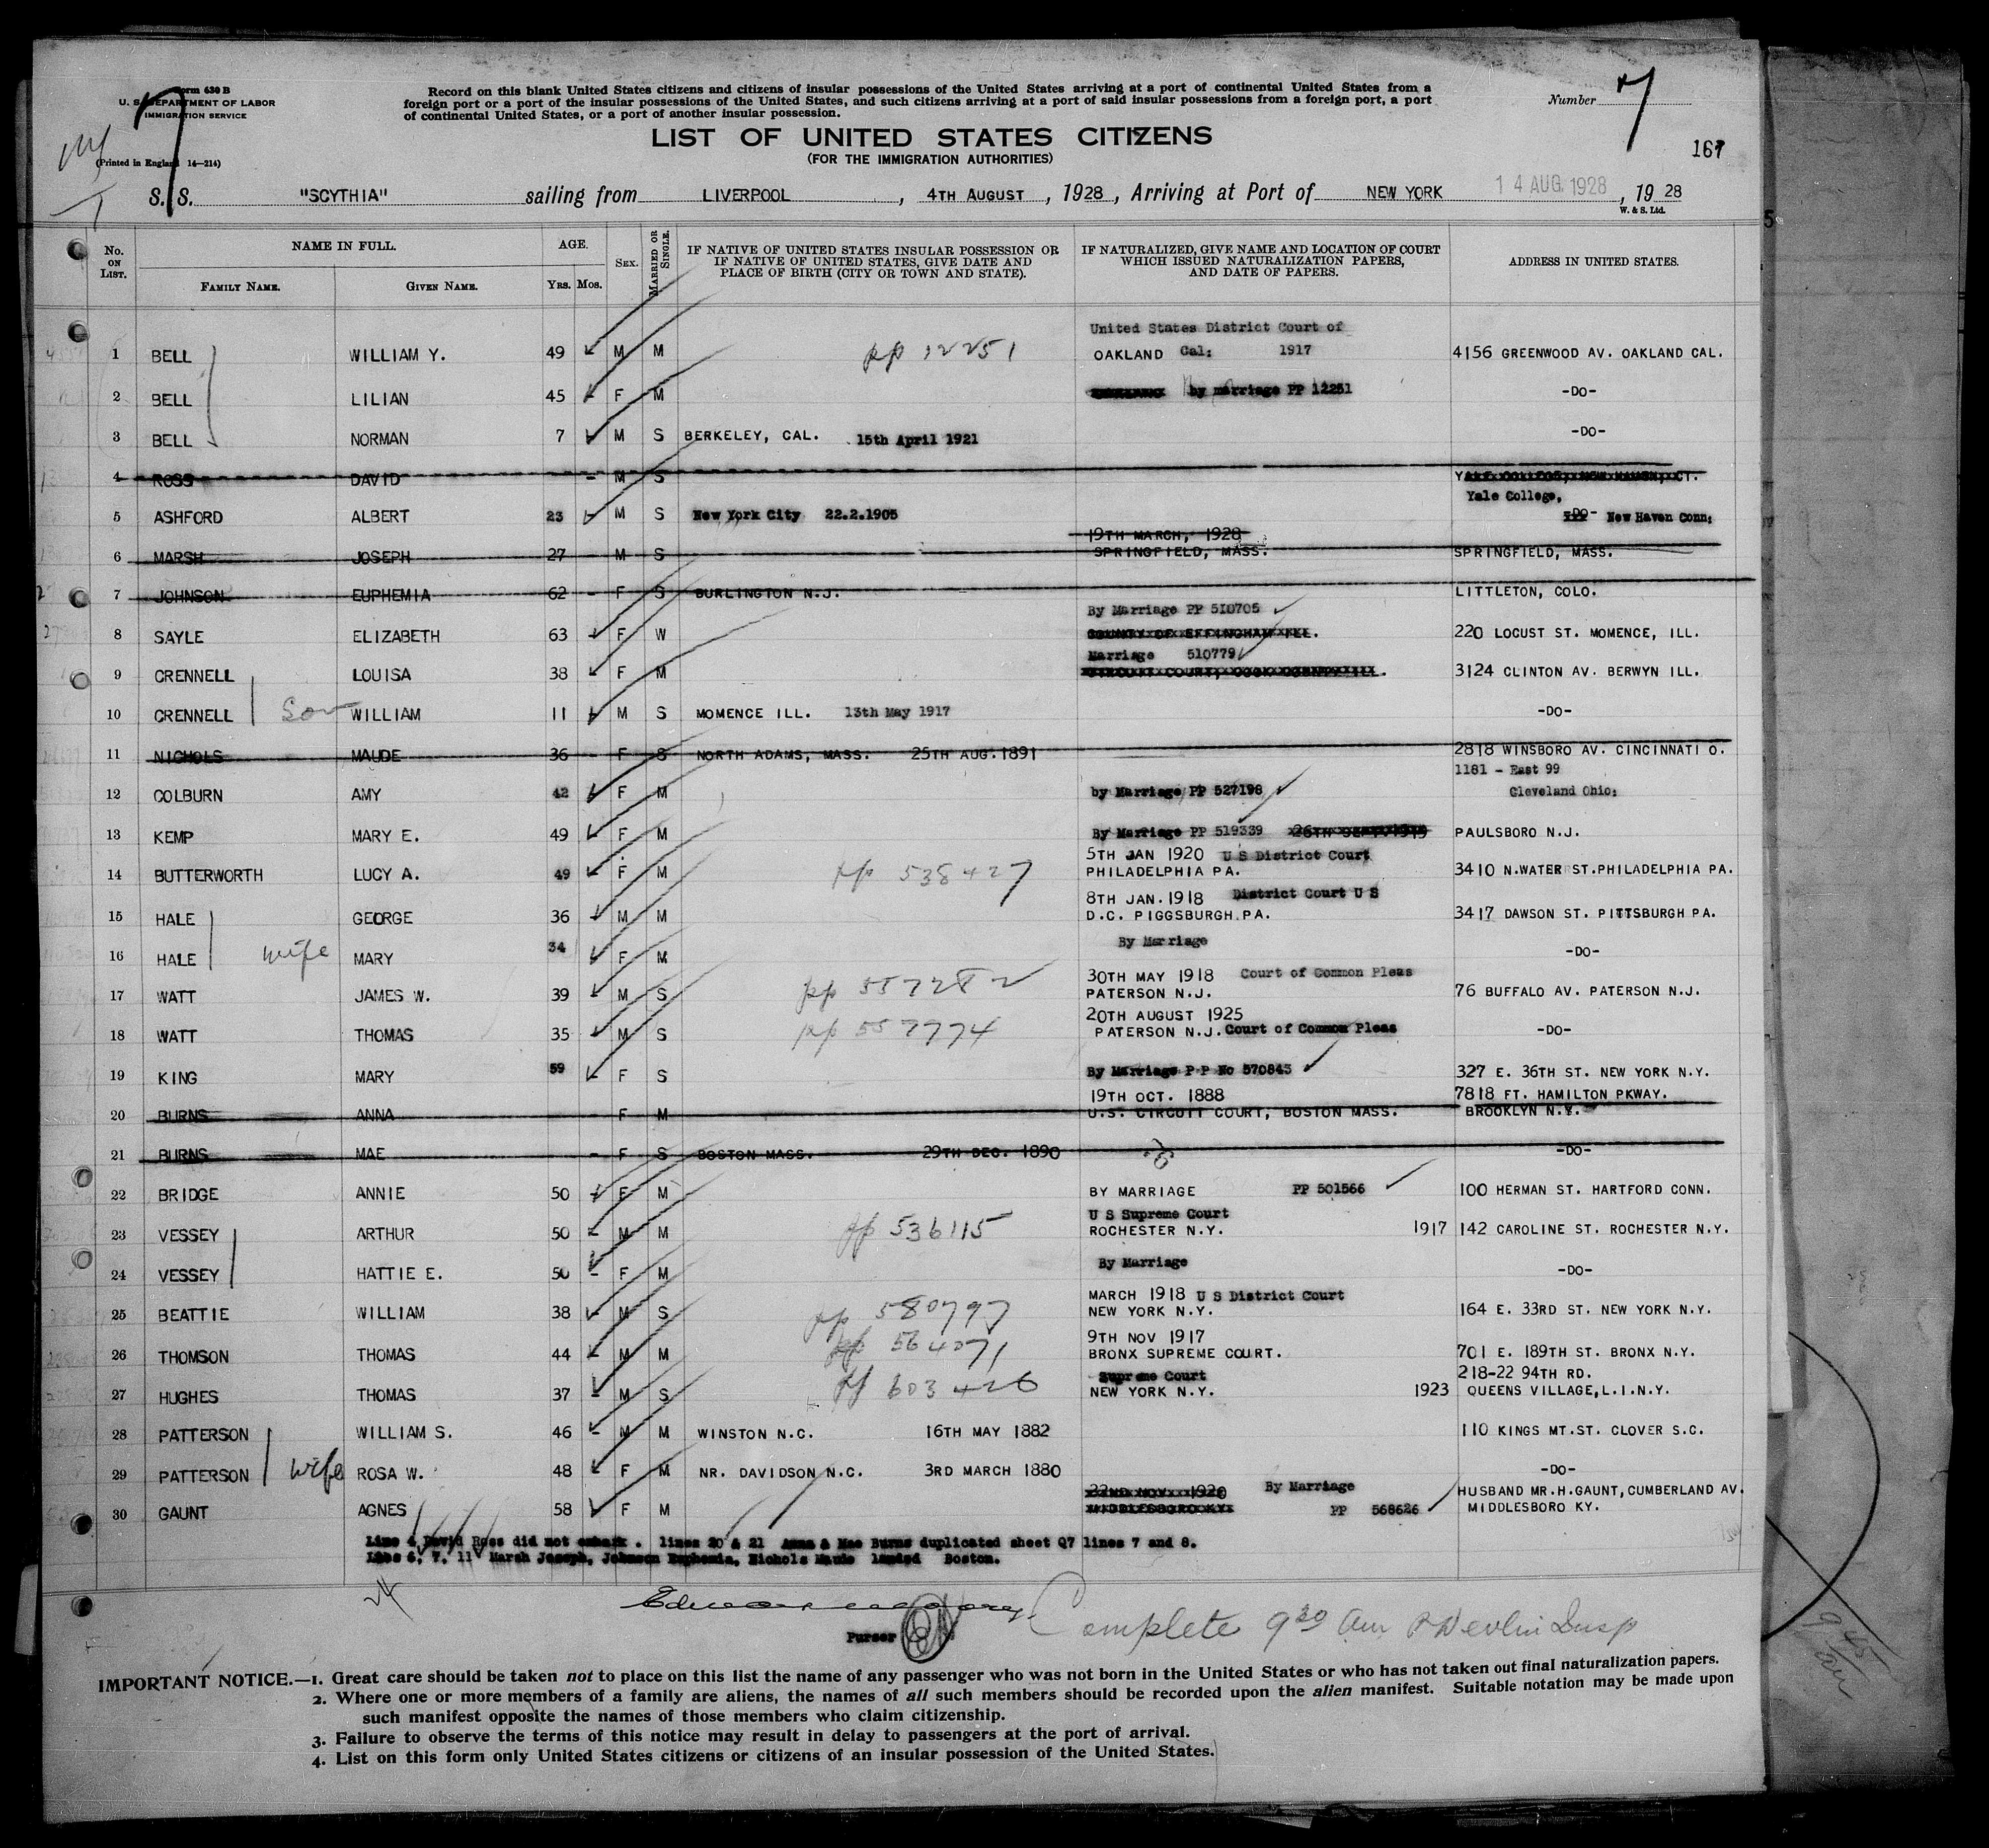 Form 630 B
U. S. DEPARTMENT OF LABOR
IMMIGRATION SERVICE
(Printed in England 14—214)
Record on this blank United States citizens and citizens of insular possessions of the United States arriving at a port of continental United States from a
foreign port or a port of the insular possessions of the United States, and such citizens arriving at a port of said insular possessions from a foreign port, a port
of continental United States, or a port of another insular possession.
Number 7
LIST OF UNITED STATES CITIZENS
(FOR THE IMMIGRATION AUTHORITIES)
167
S. S. "SCYTHIA" sailing from LIVERPOOL, 4TH AUGUST, 1928, Arriving at Port of NEW YORK 14 AUG. 1928, 1928
W. & S. Ltd.
No. ON LIST. NAME IN FULL. FAMILY NAME. GIVEN NAME. AGE. Yrs. Mos. SEX. MARRIED OR SINGLE. IF NATIVE OF UNITED STATES INSULAR POSSESSION OR IF NATIVE OF UNITED STATES, GIVE DATE AND PLACE OF BIRTH (CITY OR TOWN AND STATE). IF NATURALIZED, GIVE NAME AND LOCATION OF COURT WHICH ISSUED NATURALIZATION PAPERS, AND DATE OF PAPERS. ADDRESS IN UNITED STATES.
United States District Court of
1 BELL WILLIAM Y. 49 M M pp 12251 OAKLAND Cal: 1917 4156 GREENWOOD AV. OAKLAND CAL.
2 BELL LILIAN 45 - F M by marriage PP 12251 -DO-
3 BELL NORMAN 7 M S BERKELEY, CAL. 15th April 1921 -DO-
4 ROSS DAVID - M S
Yale College,
5 ASHFORD ALBERT 23 - M S New York City 22.2.1905 -DO- New Haven Conn:
19TH MARCH, 1928
6 MARSH JOSEPH 27 M S SPRINGFIELD, MASS. SPRINGFIELD, MASS.
7 JOHNSON EUPHEMIA 62 - F S BURLINGTON N.J. LITTLETON, COLO.
By Marriage PP 510705
8 SAYLE ELIZABETH 63 - F W 220 LOCUST ST. MOMENCE, ILL.
Marriage 510779
9 CRENNELL LOUISA 38 F M 3124 CLINTON AV. BERWYN ILL.
10 CRENNELL Son WILLIAM 11 M S MOMENCE ILL. 13th May 1917 -DO-
11 NICHOLS MAUDE 36 - F S NORTH ADAMS, MASS. 25TH AUG. 1891 2818 WINSBORO AV. CINCINNATI O.
1181 - East 99
12 COLBURN AMY 42 F M by Marriage PP 527198 Cleveland Ohio:
13 KEMP MARY E. 49 F M By Marriage PP 519339 PAULSBORO N.J.
5TH JAN 1920 U S District Court
14 BUTTERWORTH LUCY A. 49 F M pp 538427 PHILADELPHIA PA. 3410 N.WATER ST.PHILADELPHIA PA.
8TH JAN. 1918 District Court U S
15 HALE GEORGE 36 M M D.C. PIGGSBURGH.PA. 3417 DAWSON ST. PITTSBURGH PA.
By Marriage
16 HALE wife MARY 34 F M -DO-
30TH MAY 1918 Court of Common Pleas
17 WATT JAMES W. 39 M S pp 557282 PATERSON N.J. 76 BUFFALO AV. PATERSON N.J.
20TH AUGUST 1925
18 WATT THOMAS 35 M S pp 557774 PATERSON N.J. Court of Common Pleas -DO-
19 KING MARY 59 F S By Marriage P P No 570843 327 E. 36TH ST. NEW YORK N.Y.
19TH OCT. 1888 7818 FT. HAMILTON PKWAY.
20 BURNS ANNA - F M U.S. CIRCUIT COURT, BOSTON MASS. BROOKLYN N.Y.
21 BURNS MAE - F S BOSTON MASS. 29TH DEC. 1890 -DO-
22 BRIDGE ANNIE 50 F M BY MARRIAGE PP 501566 100 HERMAN ST. HARTFORD CONN.
U S Supreme Court
23 VESSEY ARTHUR 50 M M pp 536115 ROCHESTER N.Y. 1917 142 CAROLINE ST. ROCHESTER N.Y.
By Marriage
24 VESSEY HATTIE E. 50 - F M -DO-
MARCH 1918 U S District Court
25 BEATTIE WILLIAM 38 M S pp 580797 NEW YORK N.Y. 164 E. 33RD ST. NEW YORK N.Y.
9TH NOV 1917
26 THOMSON THOMAS 44 M M pp 564071 BRONX SUPREME COURT. 701 E. 189TH ST. BRONX N.Y.
Supreme Court 218-22 94TH RD.
27 HUGHES THOMAS 37 M S pp 603426 NEW YORK N.Y. 1923 QUEENS VILLAGE,L.I.N.Y.
28 PATTERSON WILLIAM S. 46 - M M WINSTON N.C. 16TH MAY 1882 110 KINGS MT.ST. CLOVER S.C.
29 PATTERSON wife ROSA W. 48 F M NR. DAVIDSON N.C. 3RD MARCH 1880 -DO-
By Marriage HUSBAND MR.H.GAUNT,CUMBERLAND AV.
30 GAUNT AGNES 58 F M PP 568626 MIDDLESBORO KY.
Line 4 David Ross did not embark. lines 20 & 21 Anna & Mae Burns duplicated sheet Q7 lines 7 and 8.
Lines 6, 7, 11 Marsh Joseph, Johnson Euphemia, Nichols Maude landed Boston.
Purser
Complete 9 30 am Devlin Insp
9 45 am
IMPORTANT NOTICE.—1. Great care should be taken not to place on this list the name of any passenger who was not born in the United States or who has not taken out final naturalization papers.
2. Where one or more members of a family are aliens, the names of all such members should be recorded upon the alien manifest. Suitable notation may be made upon
such manifest opposite the names of those members who claim citizenship.
3. Failure to observe the terms of this notice may result in delay to passengers at the port of arrival.
4. List on this form only United States citizens or citizens of an insular possession of the United States.